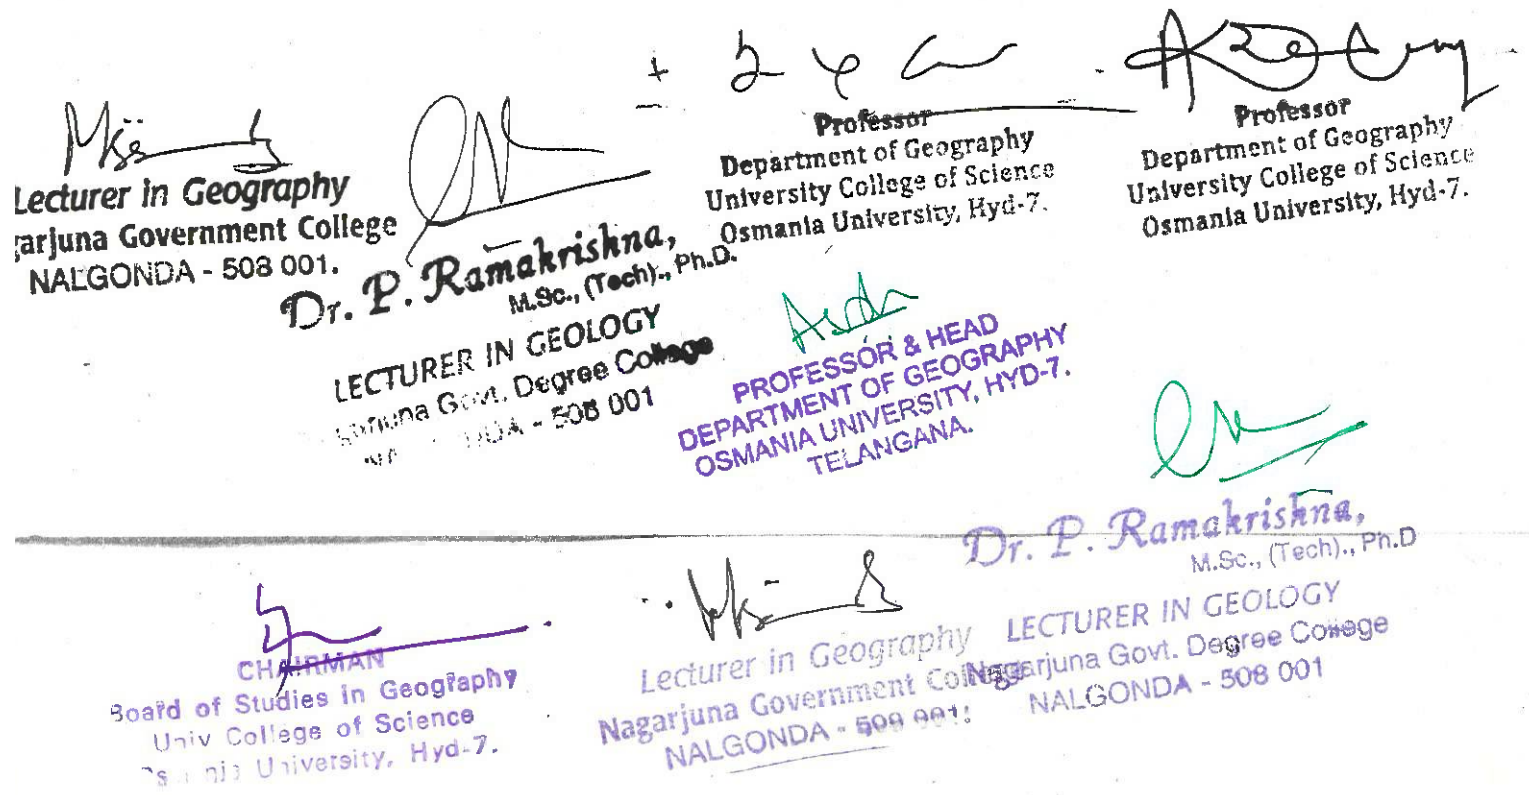 Lecturer in Geography
garjuna Government College
NALGONDA - 508 001.
Dr. P. Ramakrishna,
M.Sc., (Tech)., Ph.D.
LECTURER IN GEOLOGY
Govt. Degree College
- 508 001
Professor
Department of Geography
University College of Science
Osmania University, Hyd-7.
Professor
Department of Geography
University College of Science
Osmania University, Hyd-7.
PROFESSOR & HEAD
DEPARTMENT OF GEOGRAPHY
OSMANIA UNIVERSITY, HYD-7.
TELANGANA.
CHAIRMAN
Board of Studies in Geography
Univ College of Science
University, Hyd-7.
Lecturer in Geography
Nagarjuna Government College
NALGONDA -
Dr. P. Ramakrishna,
M.Sc., (Tech)., Ph.D
LECTURER IN GEOLOGY
Nagarjuna Govt. Degree College
NALGONDA - 508 001